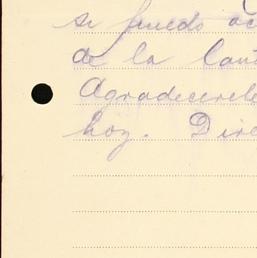 si puedo ac
de la can
Agradecerele
hoy. Dire